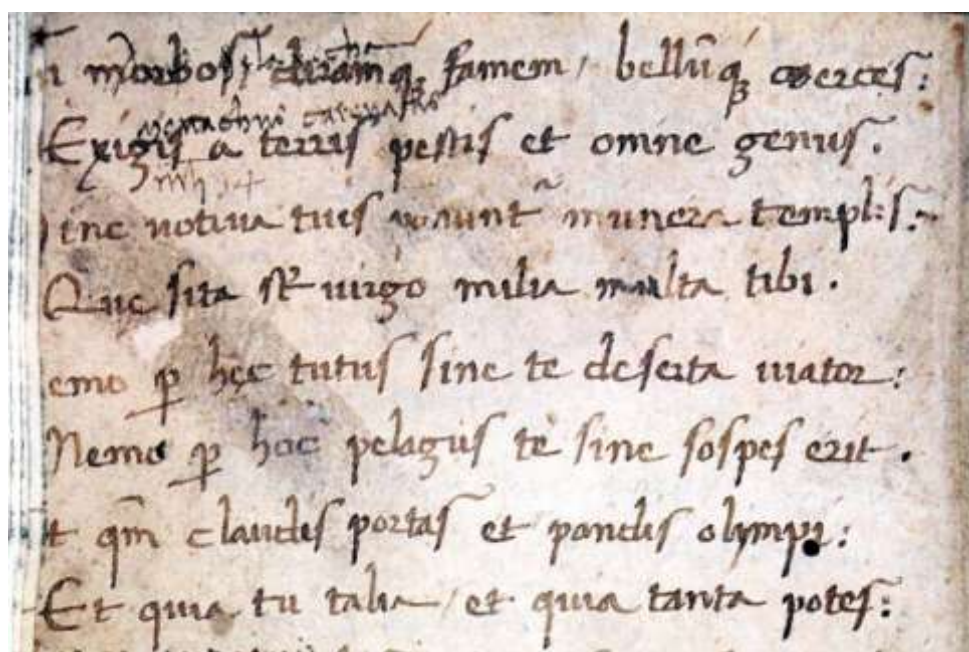 morbos, diramq, famem, bellūq, coerces:
Exigis a terris pestis et omine genus.
inc votiva tuis voaunt munera templis:
Que sita st virgo milia multa tibi.
emo p hęc tutus sine te deserta viator:
Nemo p hoc pelagus te sine sospes erit.
t qm claudis portas et pandis olimpi:
Et quia tu talia, et quia tanta potes: